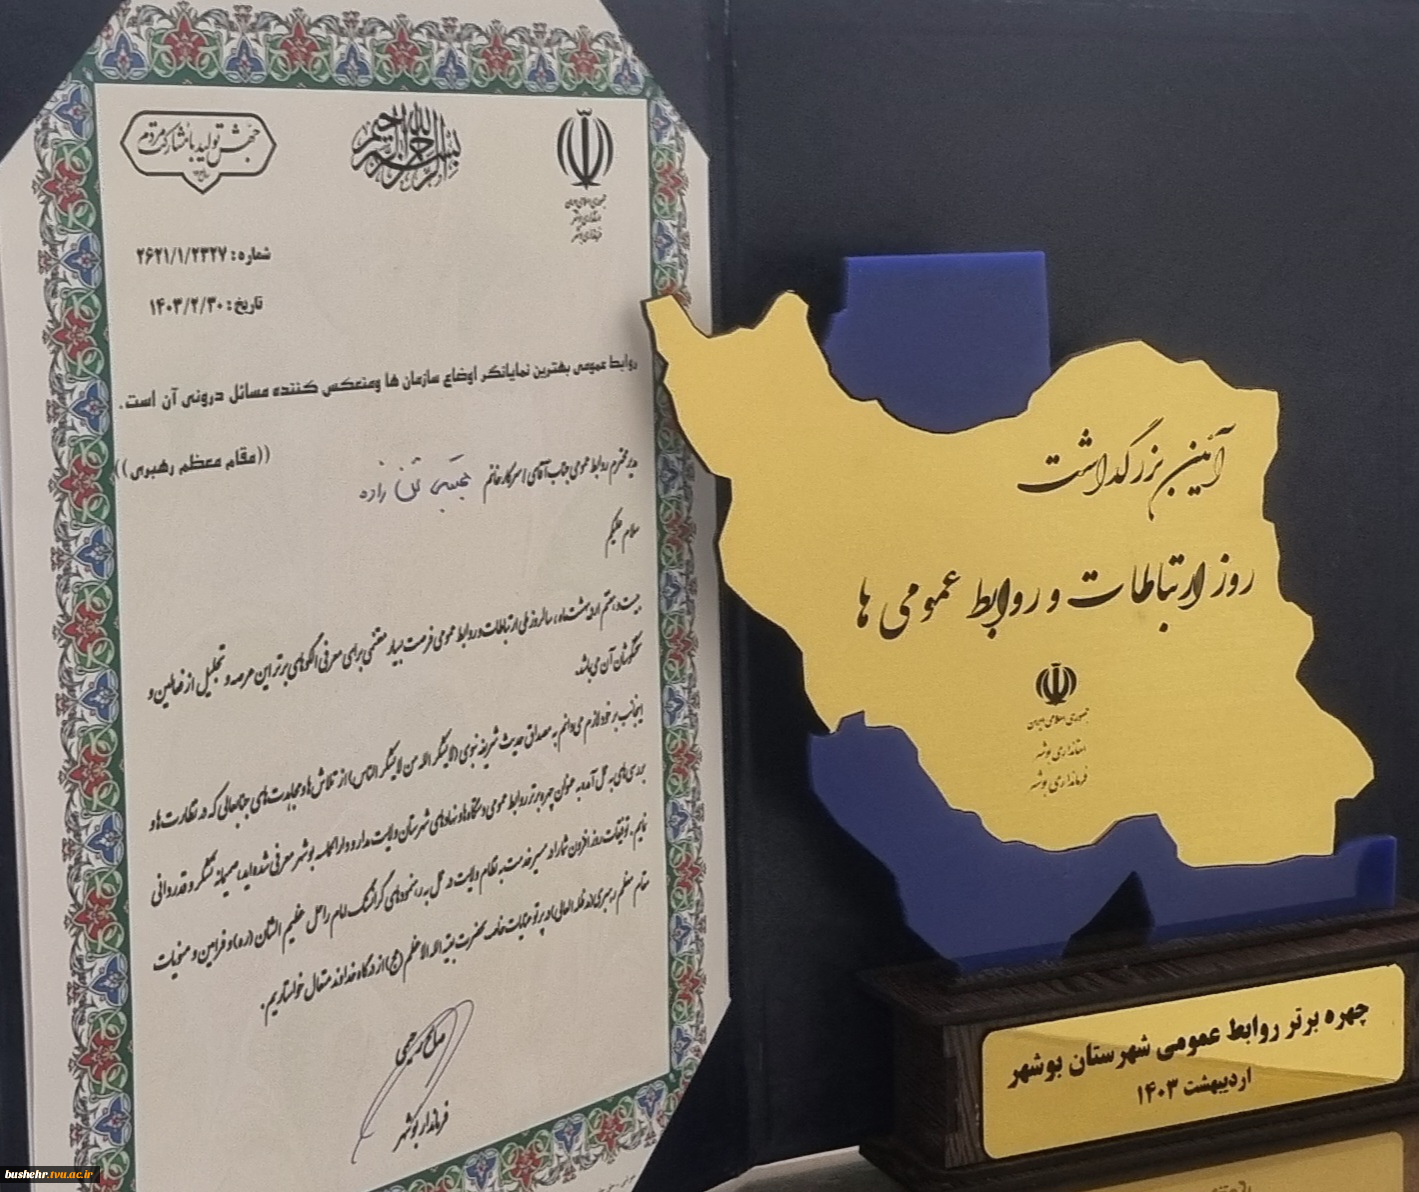 بسم الله الرحمن الرحیم
جهش تولید با مشارکت مردم
جمهوری اسلامی ایران
استانداری بوشهر
فرمانداری بوشهر
شماره : ۲۶۲۱/۱/۲۳۲۷
تاریخ : ۱۴۰۳/۲/۳۰
روابط عمومی بهترین نمایانگر اوضاع سازمان ها ومنعکس کننده مسائل درونی آن است.
((مقام معظم رهبری))
مدیر محترم روابط عمومی جناب آقای / سرکار خانم
سلام علیکم
بیست و هفتم اردیبهشت ماه ، سالروز ملی ارتباطات و روابط عمومی فرصت بسیار مغتنمی برای معرفی الگوهای برتر این عرصه و تجلیل از فعالین و
تلاشگران آن می باشد.
اینجانب بر خود لازم می دانم به مصداق حدیث شریف نبوی (لا یشکر الله من لا یشکر الناس) از تلاش ها و مجاهدت های جنابعالی که در نظارت ها و
بررسی های به عمل آمده به عنوان چهره برتر روابط عمومی دستگاه ها و نهادهای شهرستان ولایت مدار و دارالحکمه بوشهر معرفی شده اید، صمیمانه تشکر و قدردانی
نمایم. توفیقات روز افزون شما را در مسیر خدمت به نظام ولایت در عمل به رهنمودهای گرانسنگ امام راحل عظیم الشان (ره) و فرامین و منویات
مقام معظم رهبری (مدظله العالی) در پرتو عنایات خاصه حضرت بقیة الله الاعظم (عج) از درگاه خداوند متعال خواستاریم.
صالح رحیمی
فرماندار بوشهر
آئین بزرگداشت
روز ارتباطات و روابط عمومی ها
جمهوری اسلامی ایران
استانداری بوشهر
فرمانداری بوشهر
چهره برتر روابط عمومی شهرستان بوشهر
اردیبهشت ۱۴۰۳
bushehr.tvu.ac.ir